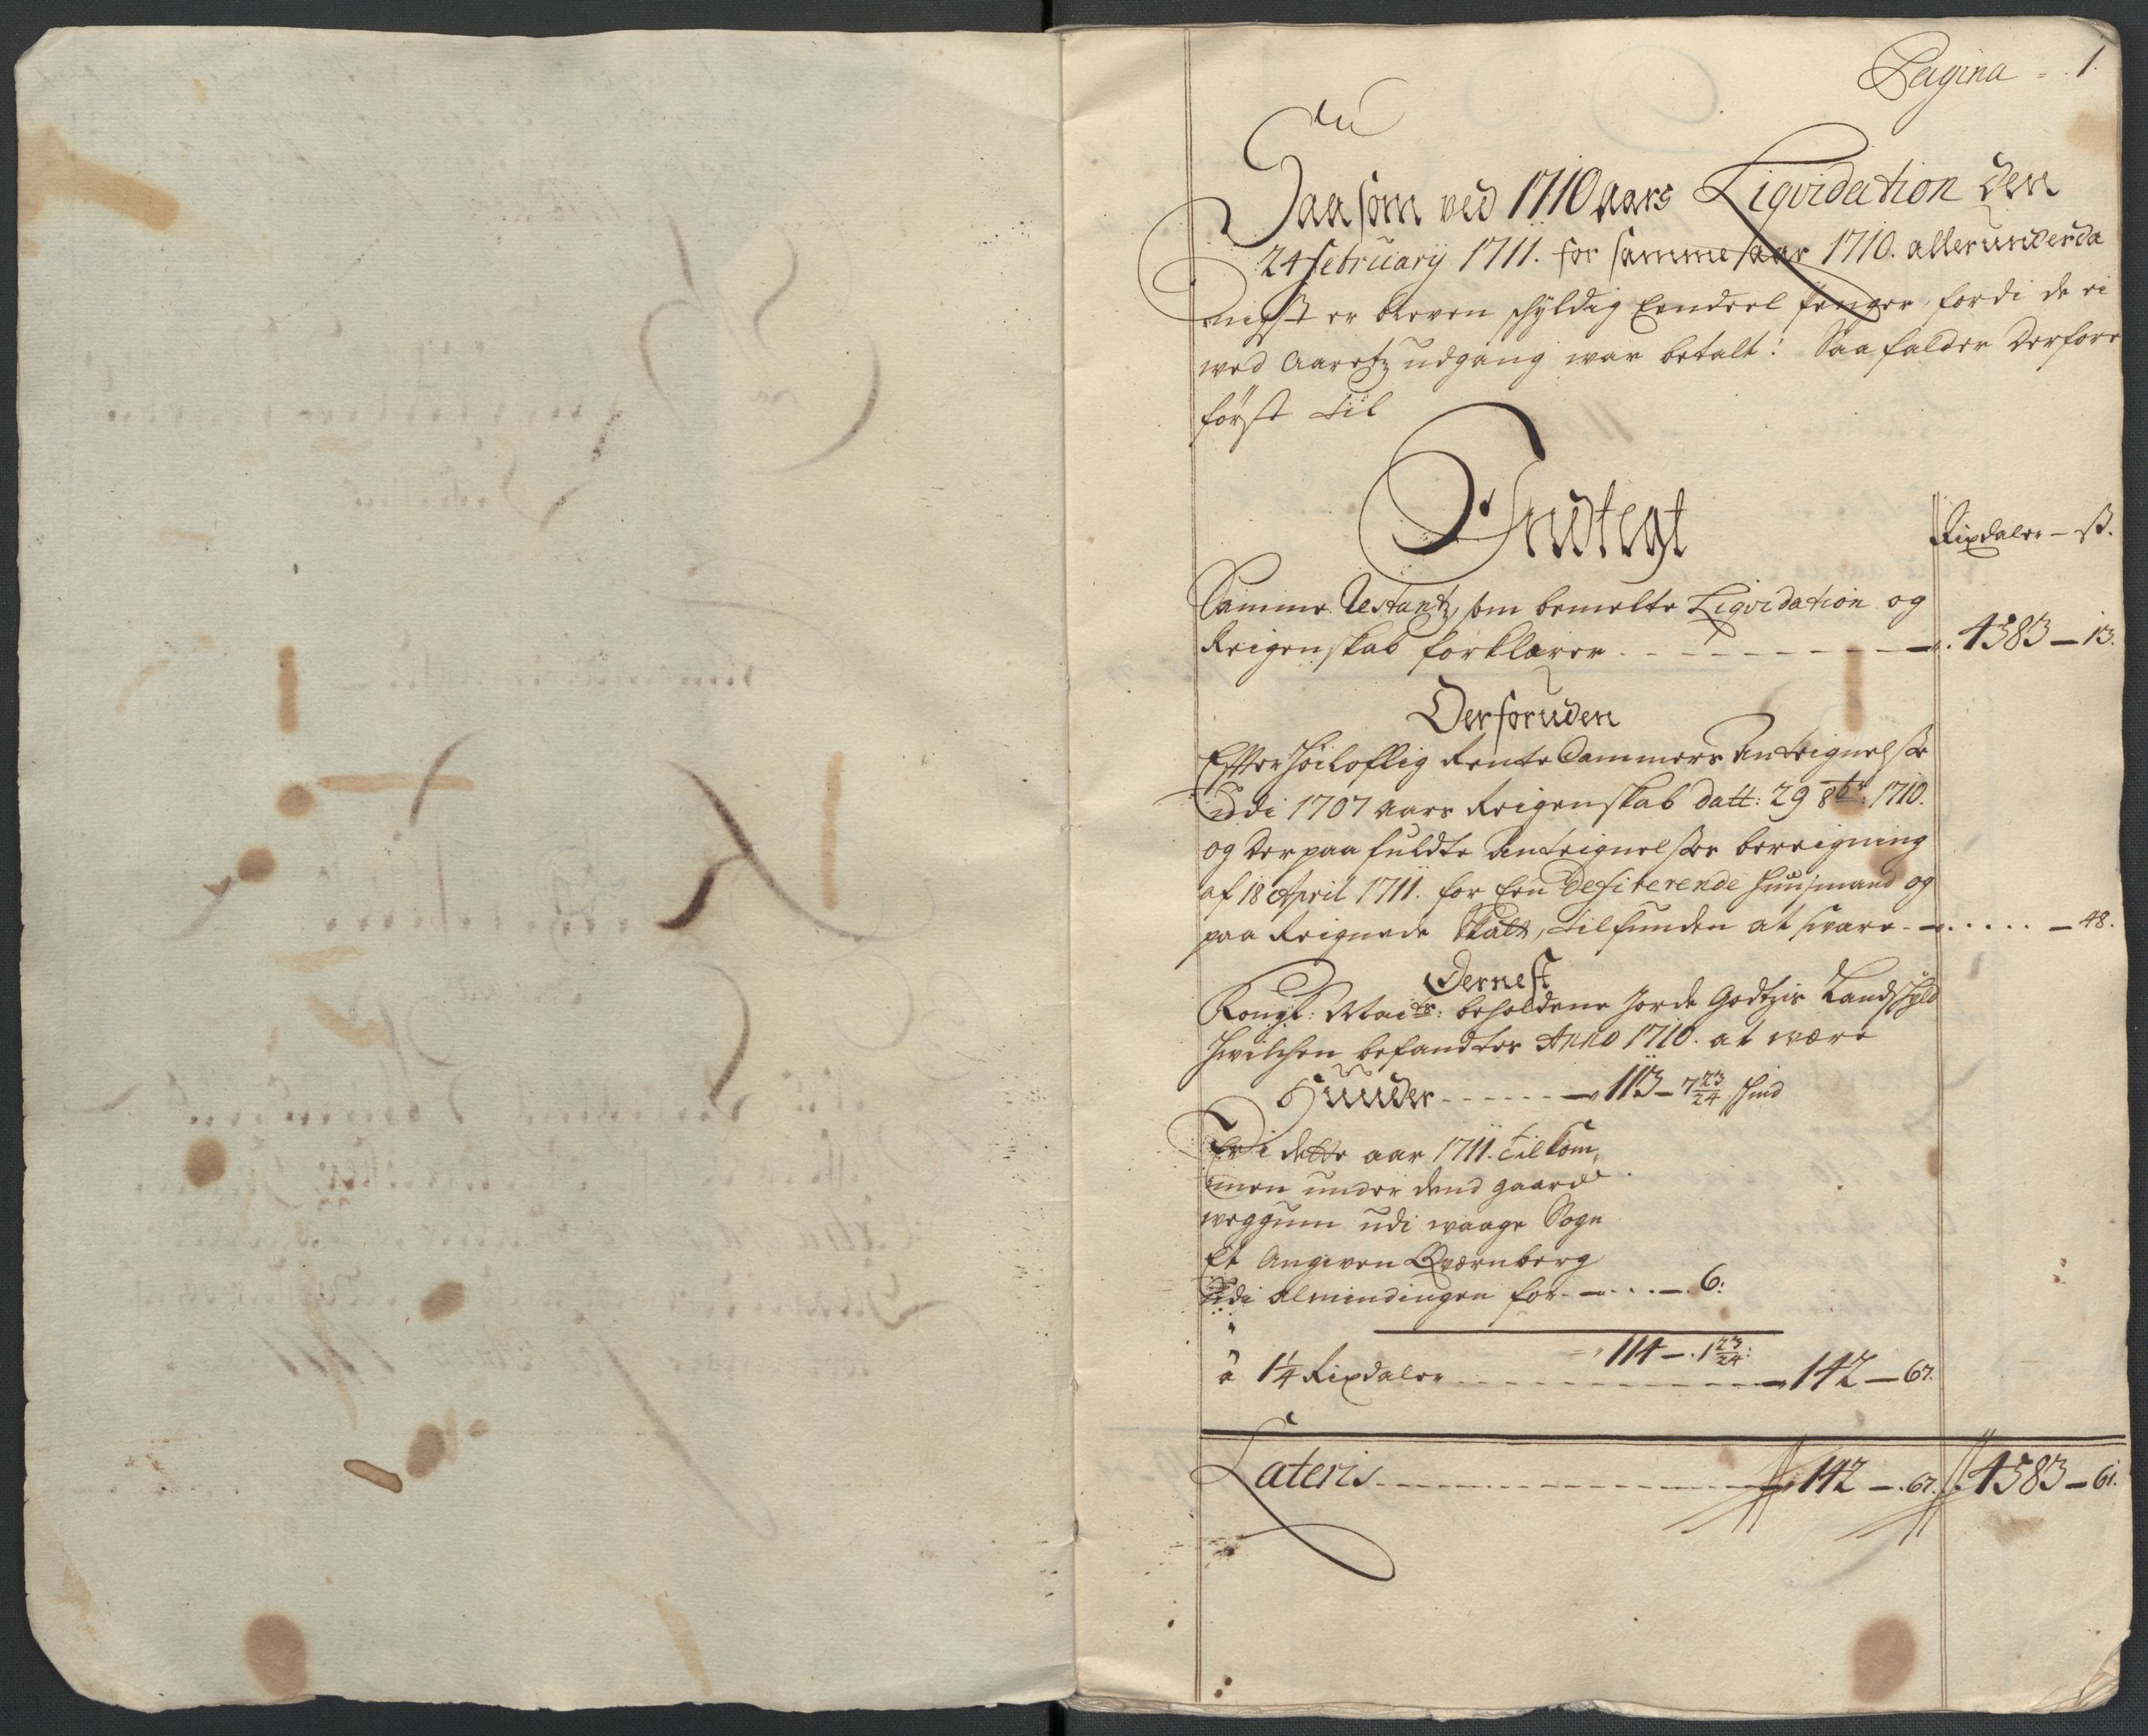 Pagina = 1.
Saasom ved 1710 aars Liqvidation den
24 february 1711. for samme aar 1710. allerunderda
nigst er bleven schyldig Eendeel penger, fordi de ei
wed Aaretz udgang war betalt: Saa falder derfore
först til
Indtegt
Rixdaler – ß.
Samme Restantz, som bemelte Liqvidation og
Reigenskab forklarer - - - - - 4583 – 13.
Derforuden
Effter Höiloflig Rente Cammers Anteignelsse
udi 1707 aars Reigenskab datt: 29 8br: 1710.
og derpaa fuldte Anteignelsser bereigning
af 18 April 1711. for Een Defiterende Huusmand og
paa Reignede Skatt, tilfunden at svare - . . . . . – 48.
Dernest
Kongl: Maits: beholdene Jorde Godtzis Landschyld
Hvilchen befandtes Anno 1710. at være
Huuder - - - - - - 113 – 7 23/24 schind
Er i dette aar 1711. tilkom,
men under dend gaard
weggum udi waage Sogn
Et Angiven Qværnberg
udi Almindingen for - . . . – . 6:
114 – . 1 23/24:
a 1 1/4 Rixdaler - - - - - 142 – 67.
Lateris - - - - - 142 – . 67. 4583 – 61.